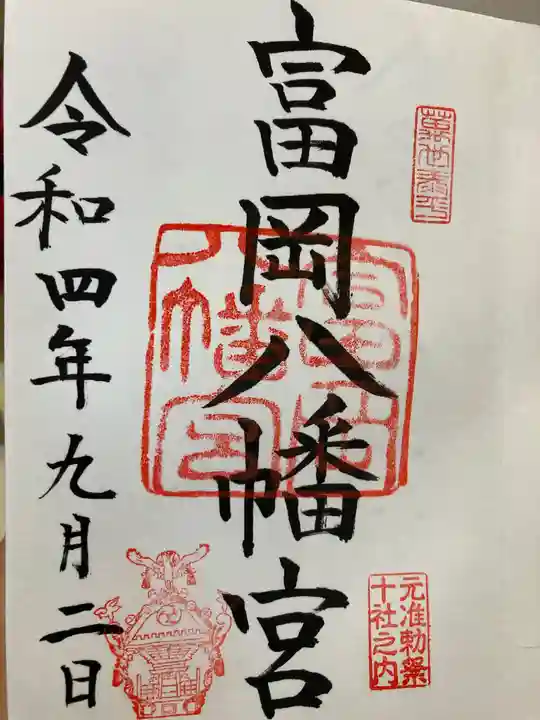 萬世泰平
元准勅祭
十社之内
富岡八幡宮
富岡
八幡宮
令和四年九月二日